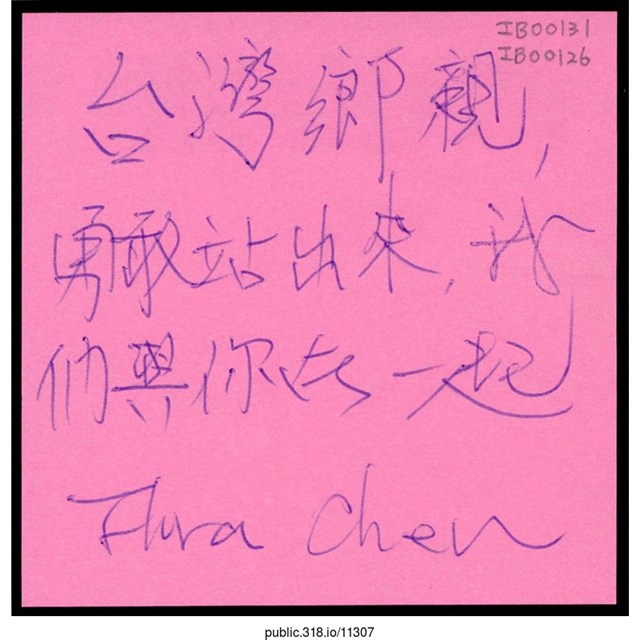 IB00131
IB00126
台灣鄉親,
勇敢站出來,我
們與你在一起
Flora Chen
public.318.io/11307